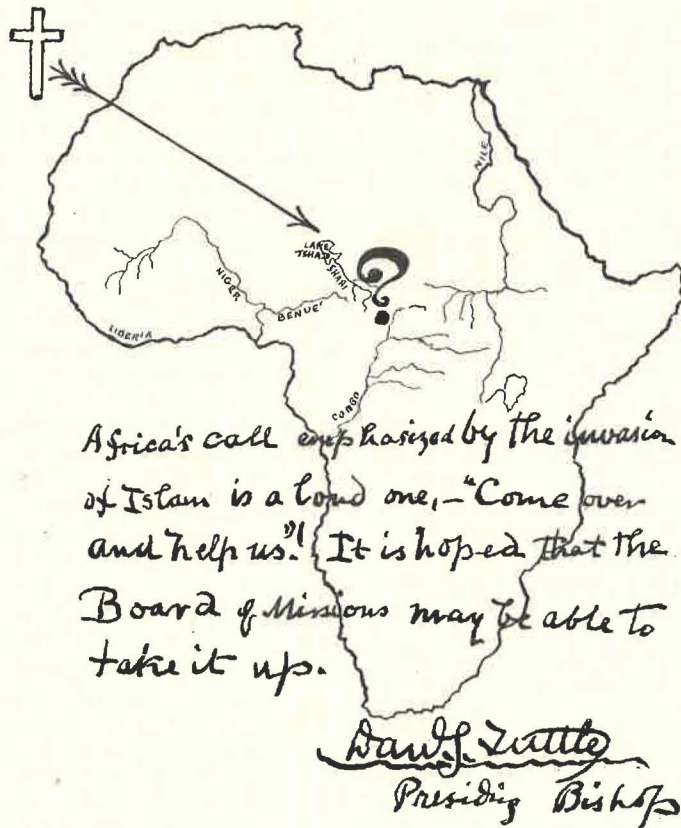 NILE
LAKE
TSHAD
SHARI
NIGER
BENUE'
LIBERIA
CONGO
Africa's call emphasized by the invasion
of Islam is a loud one,—"Come over
and help us"! It is hoped that the
Board of Missions may be able to
take it up.
Danl. S. Tuttle
Presiding Bishop